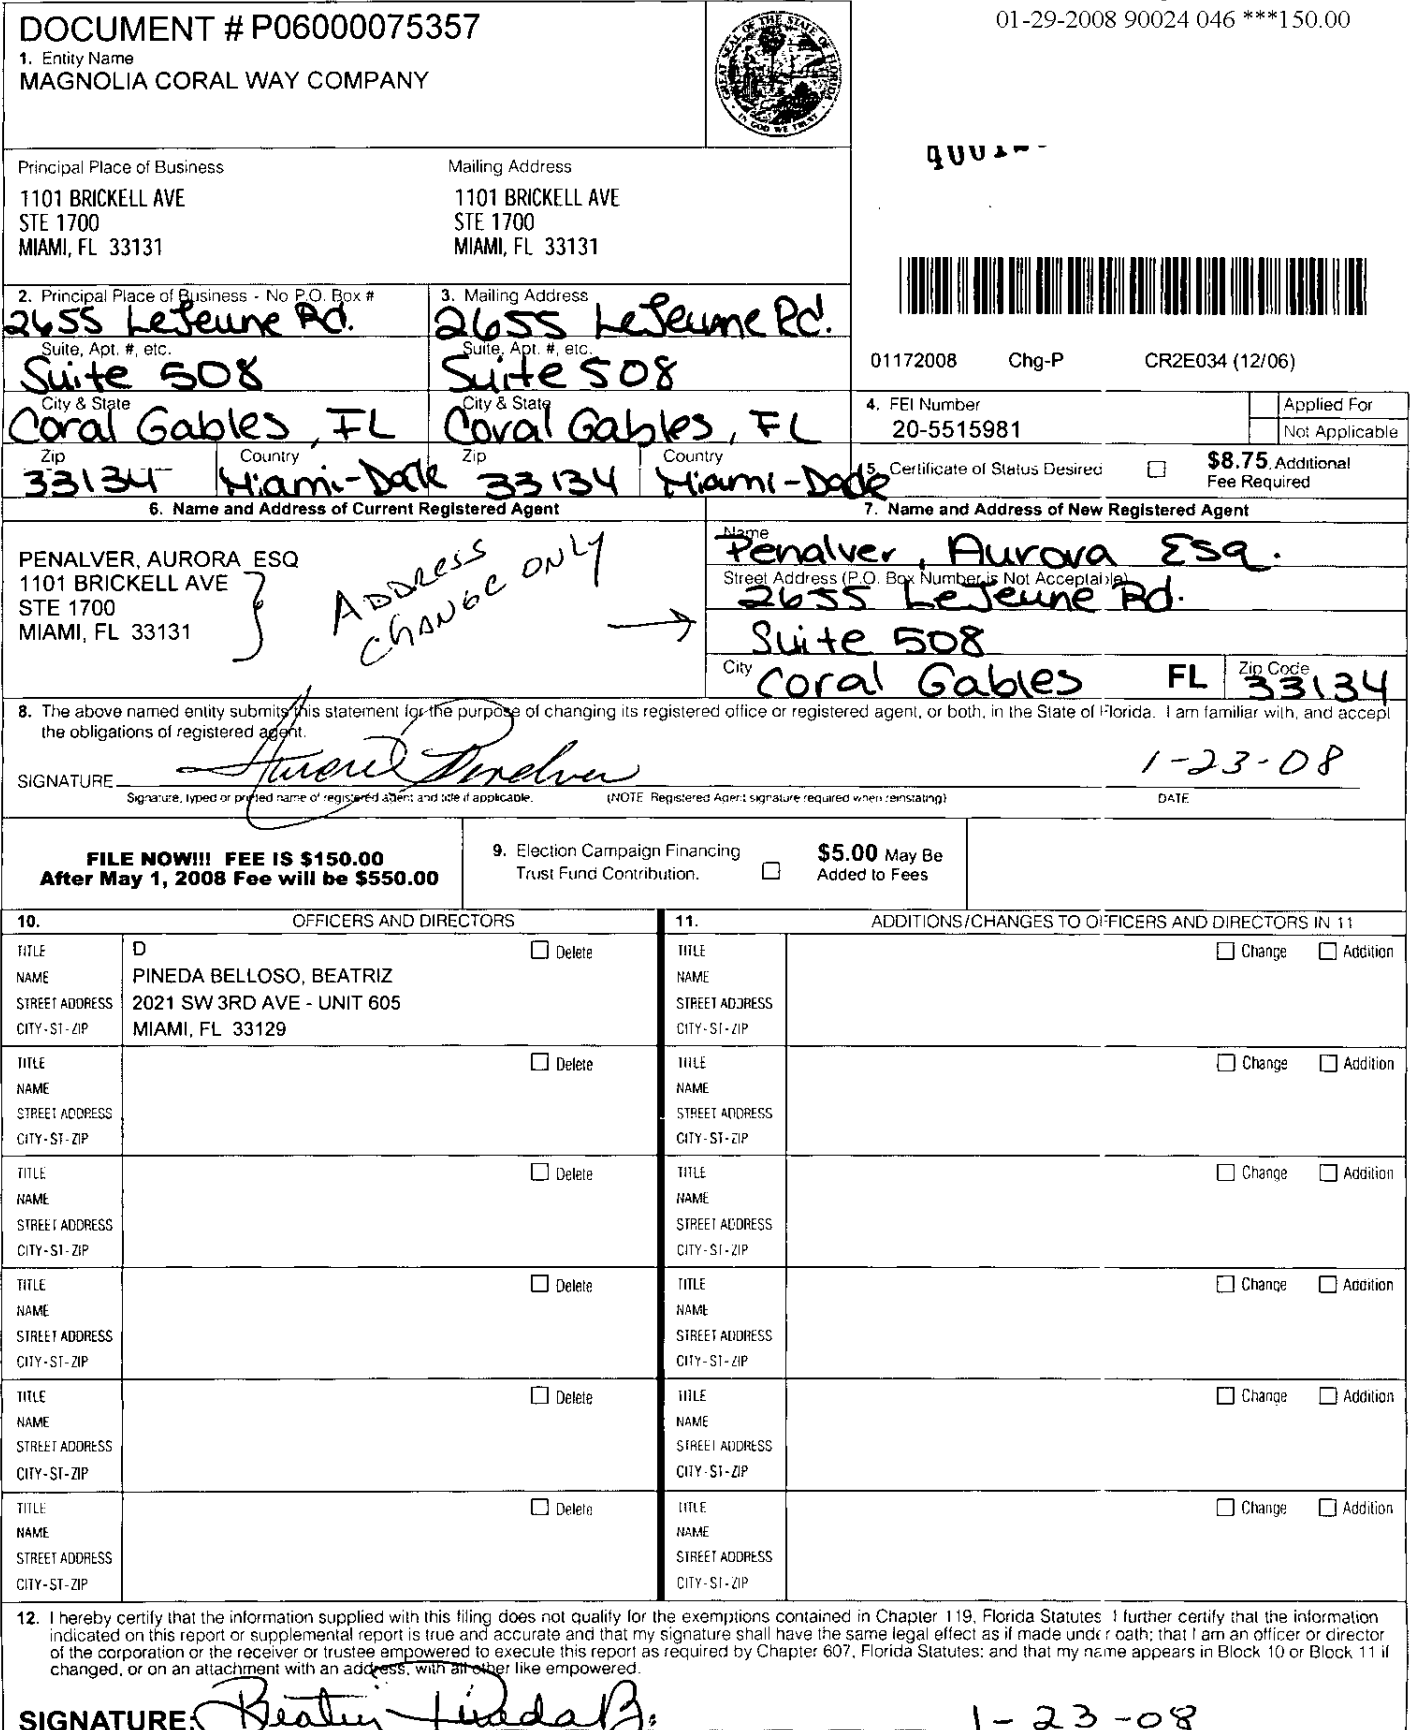 01-29-2008 90024 046 ***150.00
DOCUMENT # P06000075357
1. Entity Name
MAGNOLIA CORAL WAY COMPANY
GREAT SEAL OF THE STATE OF FLORIDA
IN GOD WE TRUST
Principal Place of Business
1101 BRICKELL AVE
STE 1700
MIAMI, FL 33131
Mailing Address
1101 BRICKELL AVE
STE 1700
MIAMI, FL 33131
2. Principal Place of Business - No P.O. Box #
2655 LeJeune Rd.
Suite, Apt. #, etc.
Suite 508
City & State
Coral Gables, FL
Zip
33134
Country
Miami-Dade
3. Mailing Address
2655 LeJeune Rd.
Suite, Apt. #, etc.
Suite 508
City & State
Coral Gables, FL
Zip
33134
Country
Miami-Dade
01172008 Chg-P CR2E034 (12/06)
4. FEI Number
20-5515981
Applied For
Not Applicable
5. Certificate of Status Desired
$8.75 Additional
Fee Required
6. Name and Address of Current Registered Agent
PENALVER, AURORA ESQ
1101 BRICKELL AVE
STE 1700
MIAMI, FL 33131
ADDRESS
CHANGE ONLY
7. Name and Address of New Registered Agent
Name
Penalver, Aurora Esq.
Street Address (P.O. Box Number is Not Acceptable)
2655 LeJeune Rd.
Suite 508
City
Coral Gables
FL
Zip Code
33134
8. The above named entity submits this statement for the purpose of changing its registered office or registered agent, or both, in the State of Florida. I am familiar with, and accept
the obligations of registered agent.
SIGNATURE Aurora Penalver 1-23-08
Signature, typed or printed name of registered agent and title if applicable. (NOTE Registered Agent signature required when reinstating) DATE
FILE NOW!!! FEE IS $150.00
After May 1, 2008 Fee will be $550.00
9. Election Campaign Financing
Trust Fund Contribution.
$5.00 May Be
Added to Fees
10. OFFICERS AND DIRECTORS
11. ADDITIONS/CHANGES TO OFFICERS AND DIRECTORS IN 11
TITLE D Delete
NAME PINEDA BELLOSO, BEATRIZ
STREET ADDRESS 2021 SW 3RD AVE - UNIT 605
CITY-ST-ZIP MIAMI, FL 33129
TITLE Change Addition
NAME
STREET ADDRESS
CITY-ST-ZIP
TITLE Delete
NAME
STREET ADDRESS
CITY-ST-ZIP
TITLE Change Addition
NAME
STREET ADDRESS
CITY-ST-ZIP
TITLE Delete
NAME
STREET ADDRESS
CITY-ST-ZIP
TITLE Change Addition
NAME
STREET ADDRESS
CITY-ST-ZIP
TITLE Delete
NAME
STREET ADDRESS
CITY-ST-ZIP
TITLE Change Addition
NAME
STREET ADDRESS
CITY-ST-ZIP
TITLE Delete
NAME
STREET ADDRESS
CITY-ST-ZIP
TITLE Change Addition
NAME
STREET ADDRESS
CITY-ST-ZIP
TITLE Delete
NAME
STREET ADDRESS
CITY-ST-ZIP
TITLE Change Addition
NAME
STREET ADDRESS
CITY-ST-ZIP
12. I hereby certify that the information supplied with this filing does not qualify for the exemptions contained in Chapter 119, Florida Statutes I further certify that the information
indicated on this report or supplemental report is true and accurate and that my signature shall have the same legal effect as if made under oath; that I am an officer or director
of the corporation or the receiver or trustee empowered to execute this report as required by Chapter 607, Florida Statutes; and that my name appears in Block 10 or Block 11 if
changed, or on an attachment with an address, with all other like empowered.
SIGNATURE: Beatriz Pineda B. 1-23-08